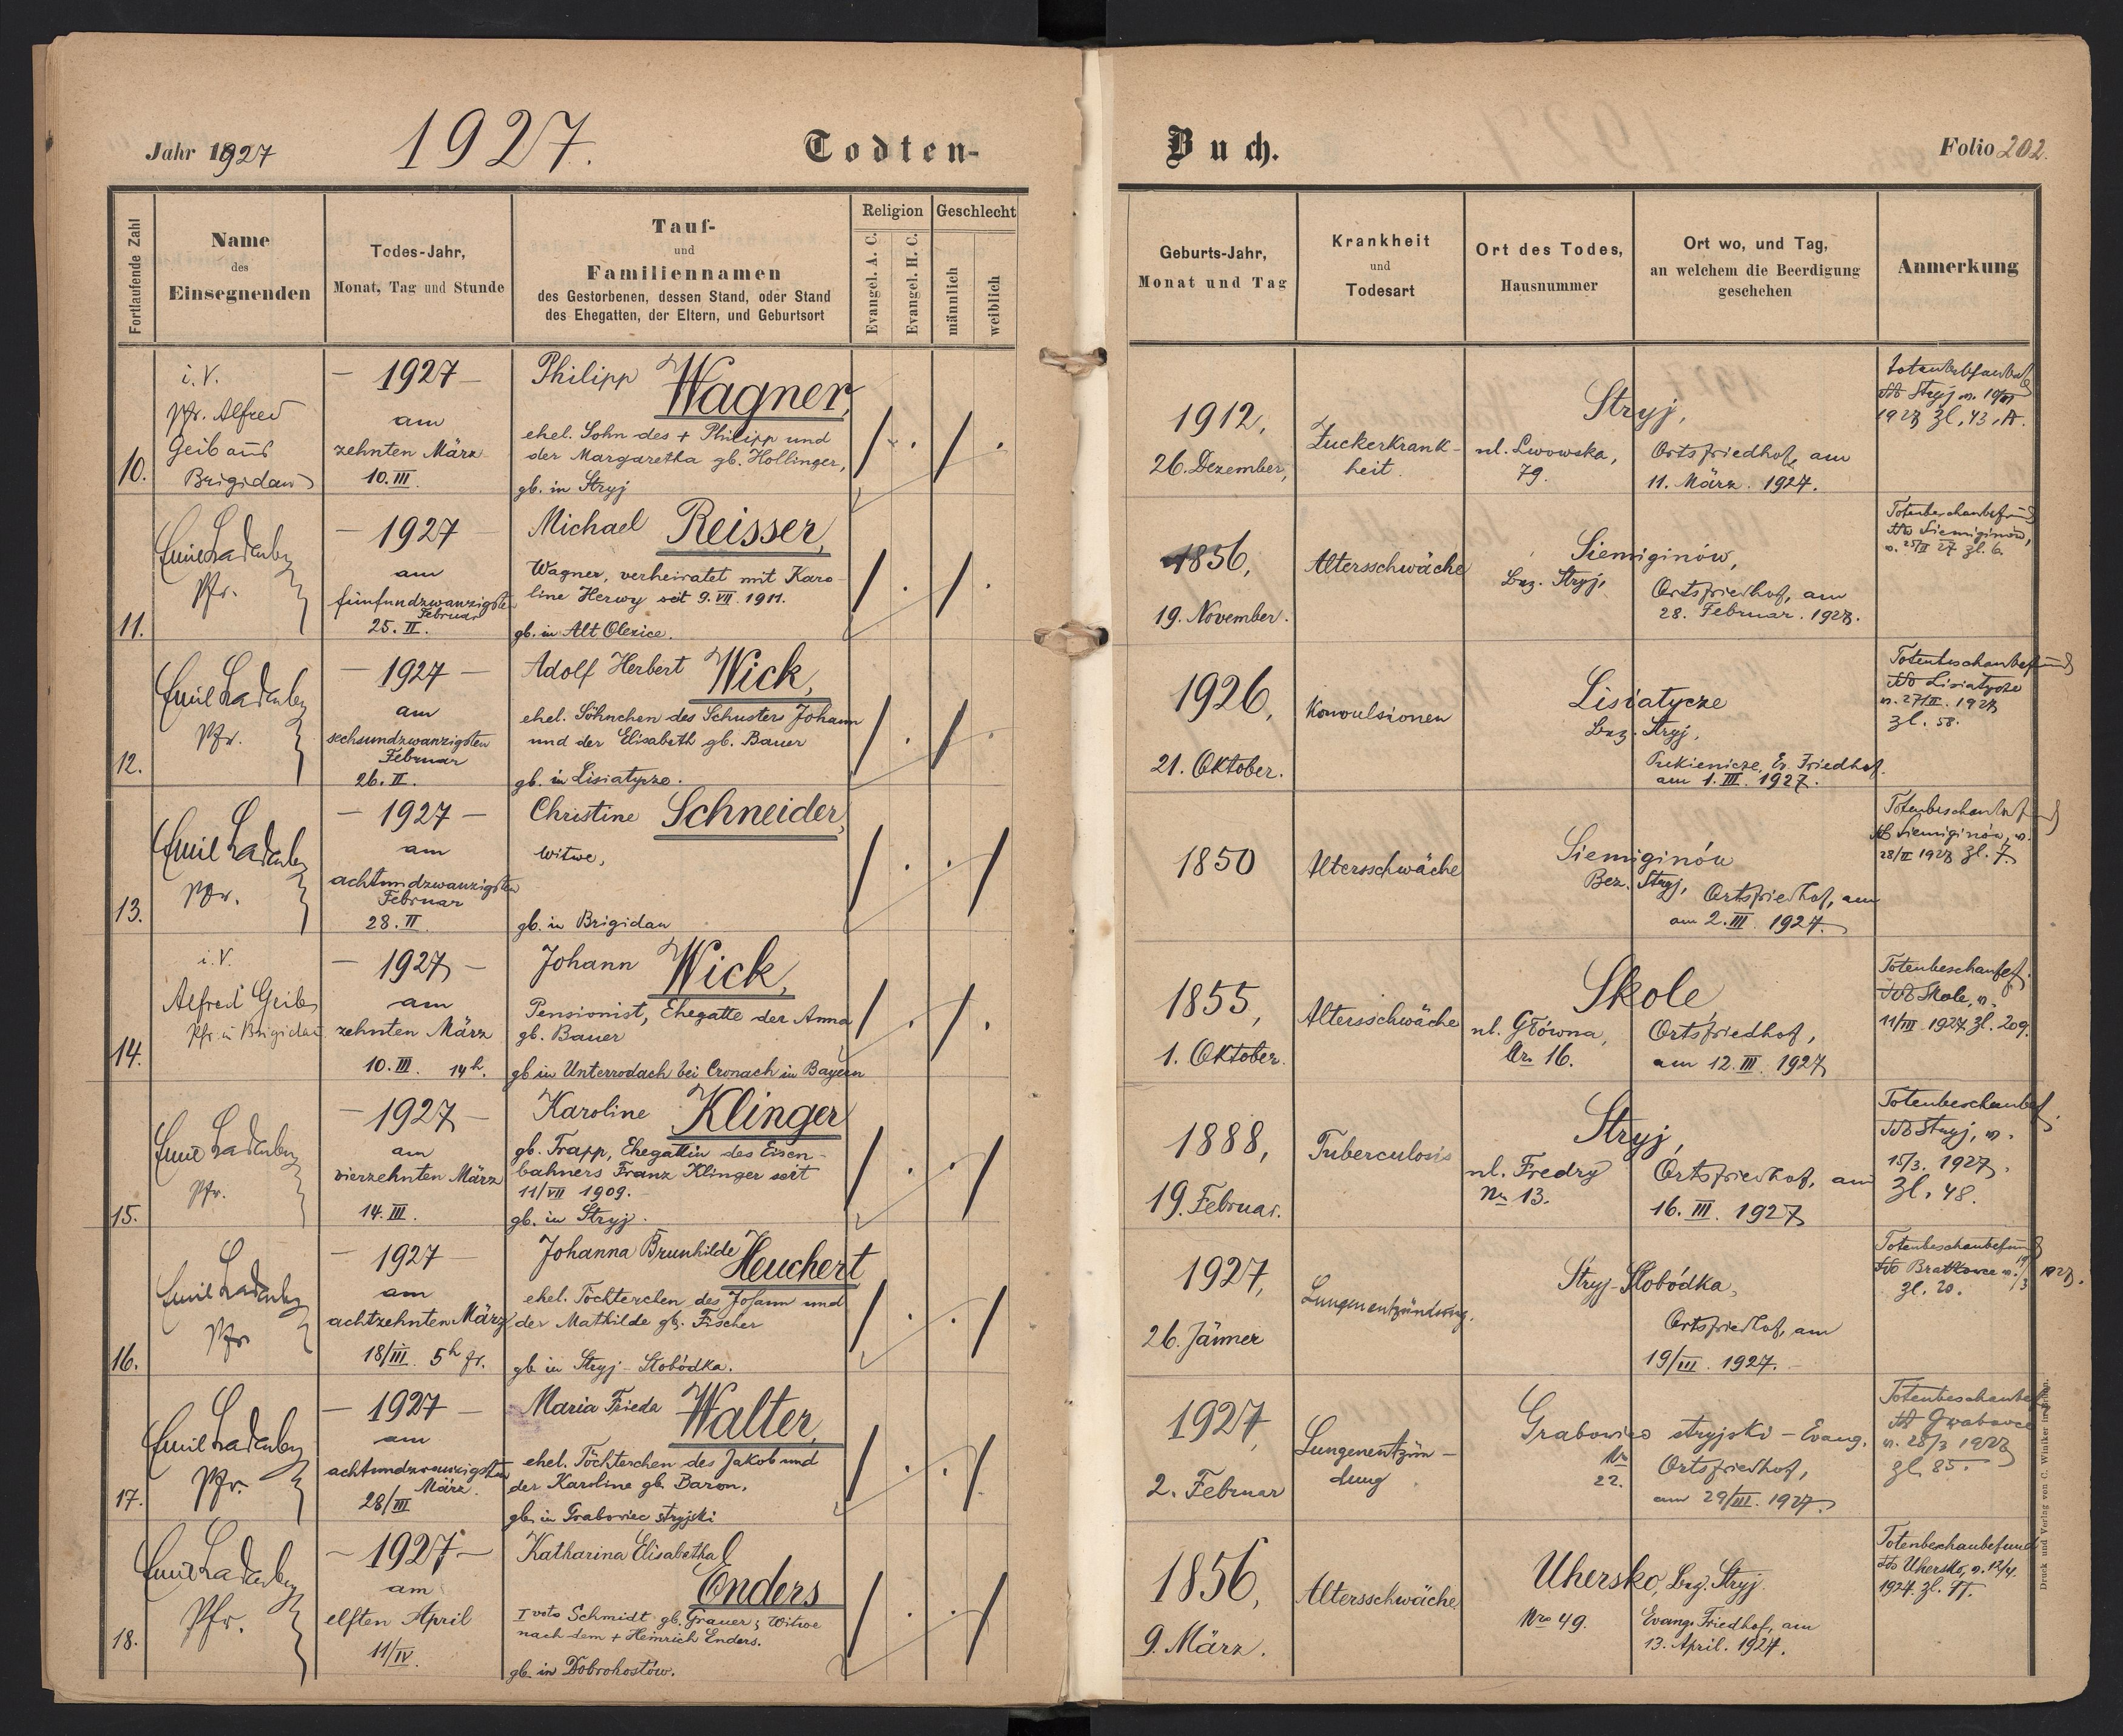 Jahr 1927
1927.
Todten-
Buch.
Folio 202.
Fortlaufende Zahl
Name
des
Einsegnenden
Todes-Jahr,
Monat, Tag und Stunde
Tauf-
und
Familiennamen
des Gestorbenen, dessen Stand, oder Stand
des Ehegatten, der Eltern, und Geburtsort
Religion
Evangel. A. C.
Evangel. H. C.
Geschlecht
männlich
weiblich
Geburts-Jahr,
Monat und Tag
Krankheit
und
Todesart
Ort des Todes,
Hausnummer
Ort wo, und Tag,
an welchem die Beerdigung
geschehen
Anmerkung
10.
i. V.
Pfr. Alfred
Geib aus
Brigidau
1927
am
zehnten März
10. III.
Philipp Wagner,
ehel. Sohn des + Philipp und
der Margaretha gb. Hollinger,
gb. in Stryj
1912,
26. Dezember,
Zuckerkrank-
heit.
Stryj,
ul. Lwowska,
79.
Ortsfriedhof, am
11. März. 1927.
Stryj
1927 Zl. 43
11.
Emil Ladenberger
Pfr.
1927
am
fünfundzwanzigsten
Februar
25. II.
Michael Reisser,
Wagner, verheiratet mit Karo-
line Herwy seit 9. VII. 1911.
gb. in Alt Olexice.
1856,
19. November.
Altersschwäche
Siemiginów,
Bez. Stryj,
Ortsfriedhof, am
28. Februar. 1927.
Totenbeschaubefund
Siemiginów,
v. 25/II 27 Zl. 6.
12.
Emil Ladenberger
Pfr.
1927
am
sechsundzwanzigsten
Februar
26. II.
Adolf Herbert Wick,
ehel. Söhnchen des Schusters Johann
und der Elisabeth gb. Bauer
gb. in Lisiatycze.
1926,
21. Oktober.
Konvulsionen
Lisiatycze
Bez. Stryj,
Pukienicze, Ev. Friedhof.
am 1. III. 1927.
Totenbeschaubefund
Lisiatycze
v. 27/II. 1927
Zl. 58.
13.
Emil Ladenberger
Pfr.
1927
am
achtundzwanzigsten
Februar
28. II
Christine Schneider,
Witwe,
gb. in Brigidau
1850
Altersschwäche
Siemiginów
Bez. Stryj,
Ortsfriedhof, am
am 2. III. 1927.
Totenbeschaubefund
Siemiginów, v.
28/II 1927 Zl. 7.
14.
i. V.
Alfred Geib
Pfr. in Brigidau
1927
am
zehnten März
10. III. 14h.
Johann Wick,
Pensionist, Ehegatte der Anna
gb. Bauer
gb in Unterrodach bei Cronach in Bayern
1855,
1. Oktober.
Altersschwäche
Skole,
ul. Główna,
Nr. 16.
Ortsfriedhof,
am 12. III. 1927
Totenbeschaubef.
Skole, v.
11/III. 1927 Zl. 209.
15.
Emil Ladenberger
Pfr.
1927
am
vierzehnten März
14. III.
Karoline Klinger
gb. Trapp, Ehegattin des Eisen-
bahners Franz Klinger seit
11/VII 1909.
gb. in Stryj.
1888,
19. Februar.
Tuberculosis
Stryj,
ul. Fredry
Nr. 13.
Ortsfriedhof, am
16. III. 1927
Totenbeschaubef.
Stryj, v.
15/3. 1927,
Zl. 48.
16.
Emil Ladenberger
Pfr
1927
am
achtzehnten März
18/III. 5h fr.
Johanna Brunhilde Heuchert
ehel. Töchterchen des Johann und
der Mathilde gb. Fischer
gb in Stryj-Slobódka.
1927,
26. Jänner
Lungenentzündung.
Stryj-Slobódka,
Ortsfriedhof, am
19/III. 1927.
Totenbeschaubefund
Bratkowce v. 19/3 1927.
Zl. 20.
17.
Emil Ladenberger
Pfr.
1927
am
achtundzwanzigsten
März.
28/III
Maria Frieda Walter,
ehel. Töchterchen des Jakob und
der Karoline gb. Baron,
gb. in Grabowiec stryjski
1927,
2. Februar
Lungenentzün-
dung
Grabowiec stryjski - Evang.
Nr
22.
Ortsfriedhof,
am 29/III. 1927.
Totenbeschaubef
v. 28/3 1927
Zl. 85.
18.
Emil Ladenberger
Pfr.
1927
am
elften April
11/IV.
Katharina Elisabetha
Enders
I voto Schmidt gb. Grauer; Witwe
nach dem + Heinrich Enders.
gb. in Dobrohostów.
1856,
9. März.
Altersschwäche
Uhersko, Bez. Stryj.
Nro 49.
Evang. Friedhof, am
13. April. 1927.
Totenbeschaubefund
Uhersko, v. 12/4.
1927. Zl. 11.
Druck und Verlag von C. Winiker in Brünn.